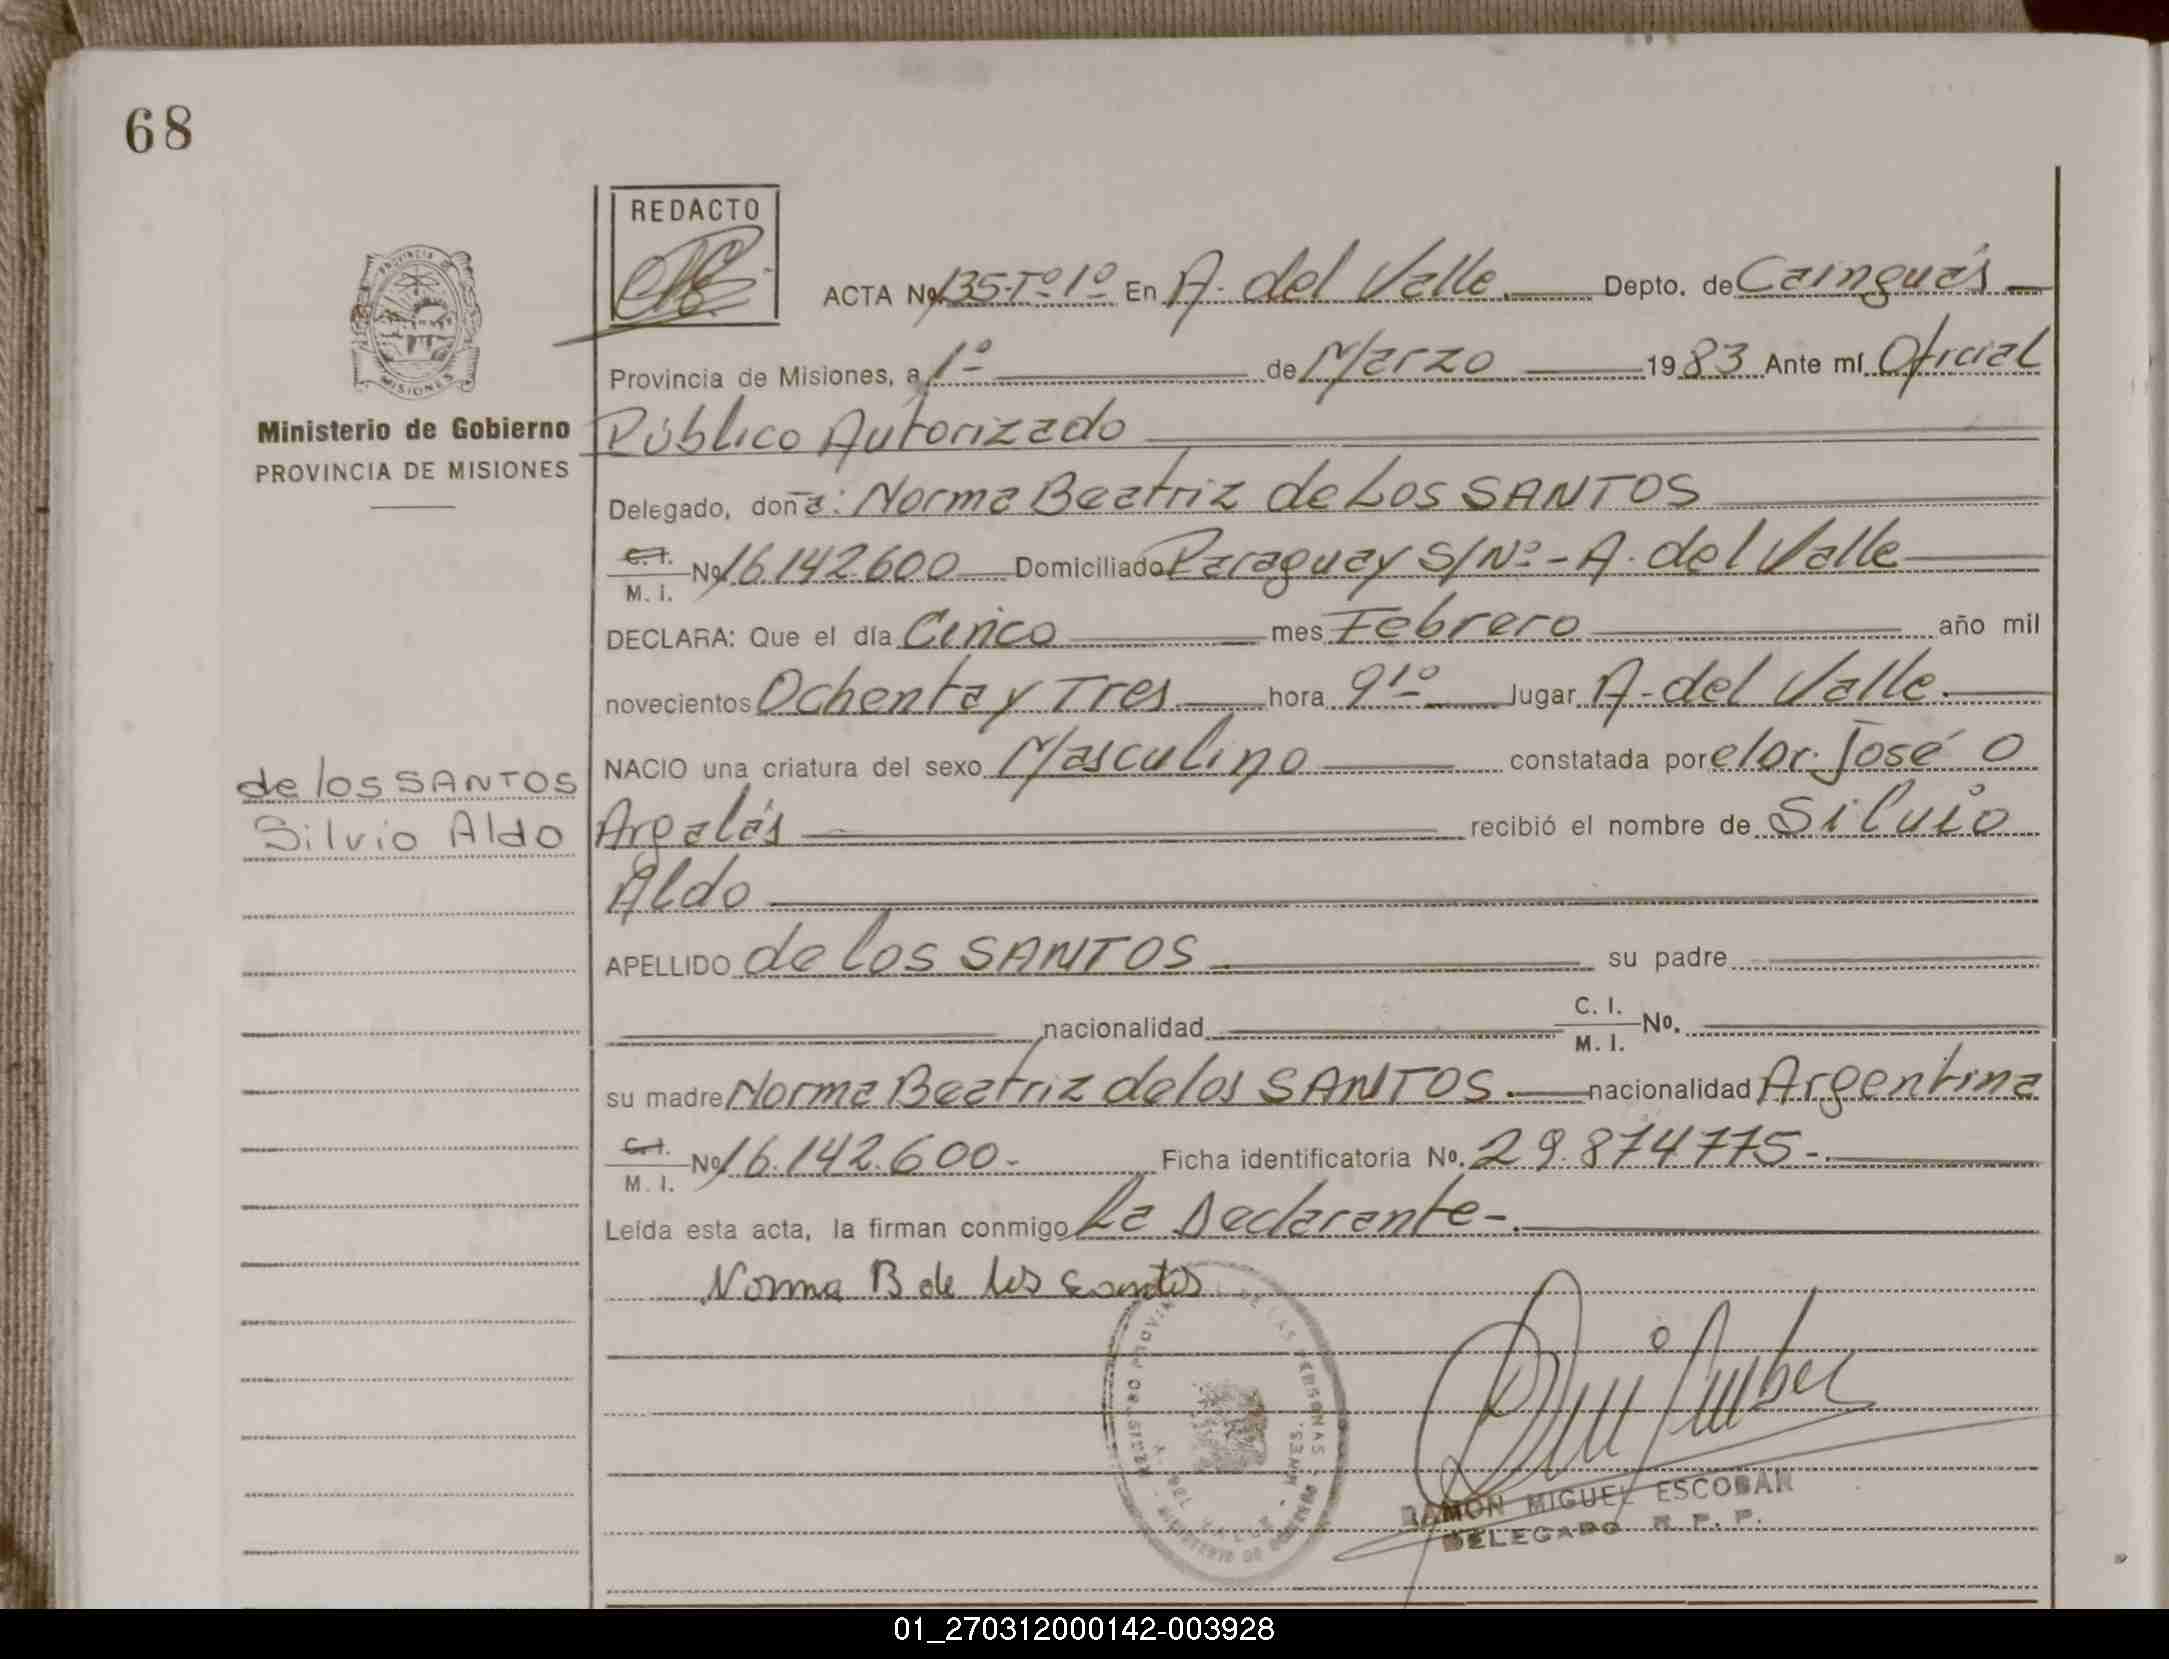 68
REDACTO
PROVINCIA DE
MISIONES
Ministerio de Gobierno
PROVINCIA DE MISIONES
ACTA Nº 135-Tº 1º En A. del Valle. Depto. de Cainguás
Provincia de Misiones, a 1º de Marzo 1983 Ante mí Oficial
Público Autorizado
Delegado, doña: Norma Beatriz de Los SANTOS
C. I.
M. I. Nº 16.142.600 Domiciliado Paraguay S/Nº - A. del Valle
DECLARA: Que el día Cinco mes Febrero año mil
novecientos Ochenta y Tres hora 9 1º lugar A. del Valle.
NACIO una criatura del sexo Masculino constatada por el Dr. José O
Argalás recibió el nombre de Silvio
Aldo
de los SANTOS
Silvio Aldo
APELLIDO de los SANTOS su padre
nacionalidad C. I.
M. I. Nº.
su madre Norma Beatriz de los SANTOS. nacionalidad Argentina
C. I.
M. I. Nº 16.142.600- Ficha identificatoria Nº. 29.874775-.
Leída esta acta, la firman conmigo La Declarante-.
Norma B de los Santos
RAMON MIGUEL ESCOBAR
DELEGADO R. P. P.
01_270312000142-003928